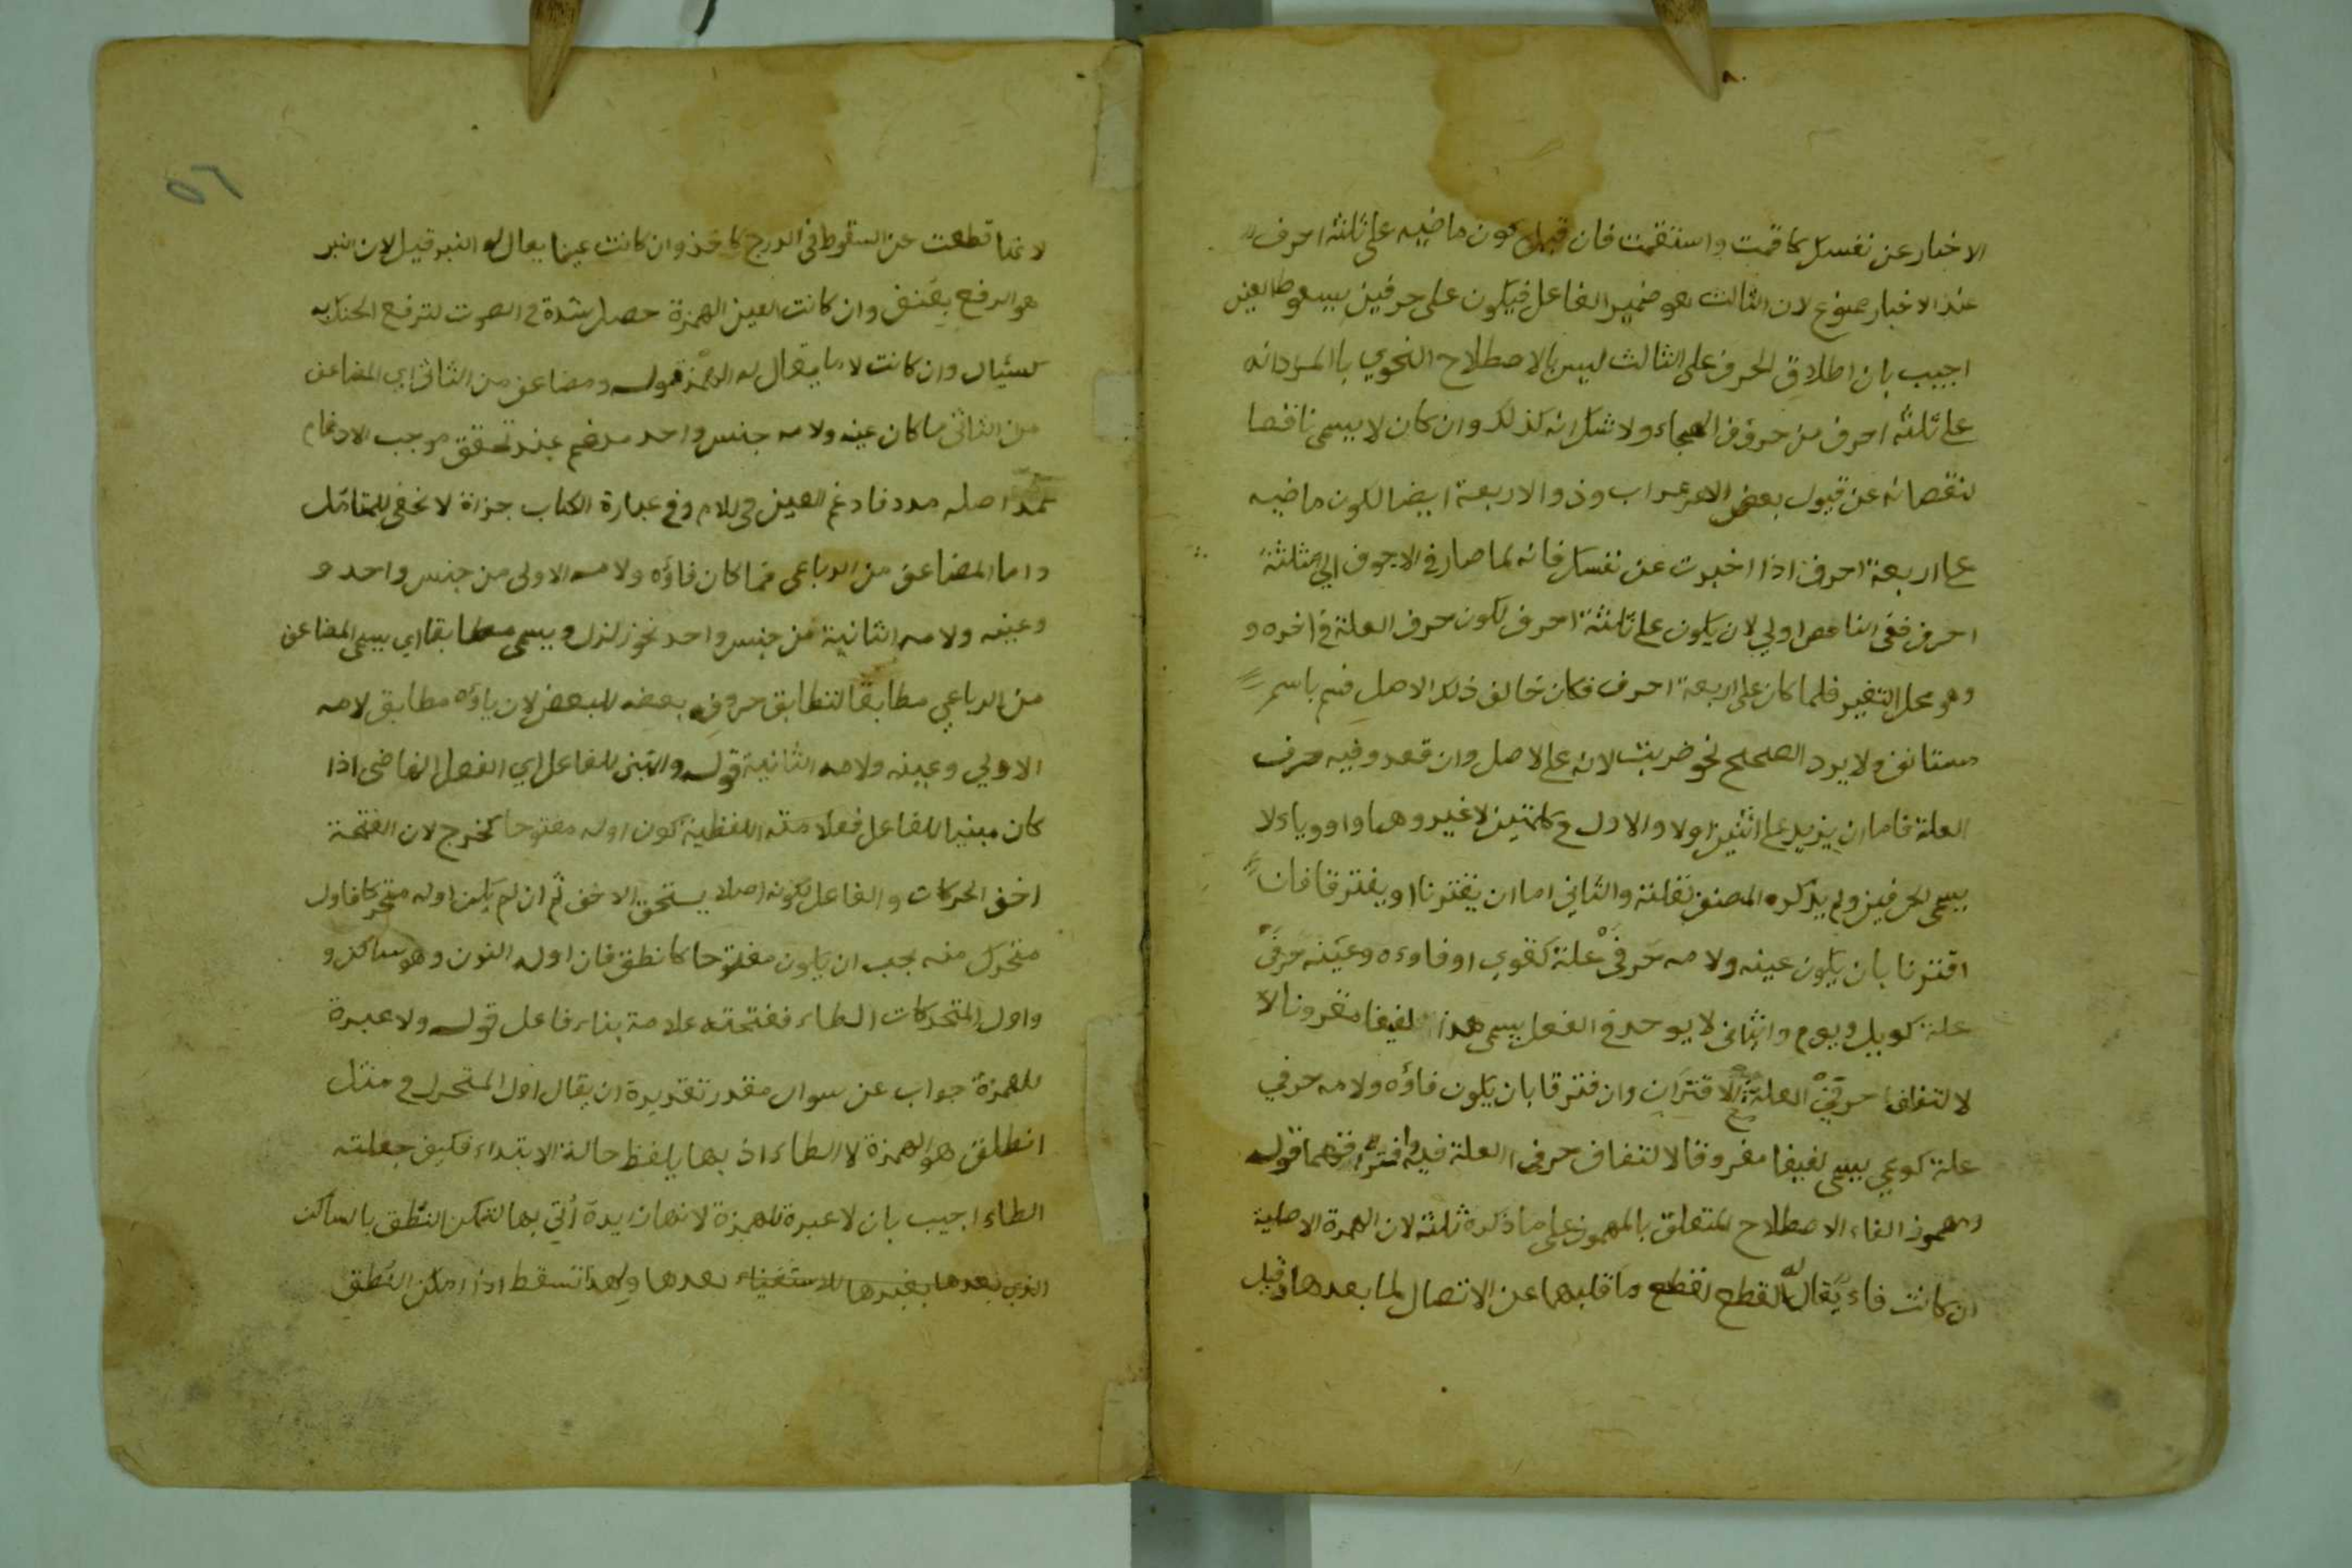 الاخبار عن نفسك كاقمت واستقمت فان قيل كون ماضيه على ثلثة احرف
عند الاخبار ممنوع لان الثالث هو ضمير الفاعل فيكون على حرفين بسقوط العين
اجيب بان اطلاق الحرف على الثالث ليس بالاصطلاح النحوي بالمراد انه
على ثلثة احرف من حروف الهجاء ولا شك انه كذلك وان كان لا يسمى ناقصا
لنقصانه عن قبول بعض الاعراب وذو الاربعة ايضا لكون ماضيه
على اربعة احرف اذا اخبرت عن نفسك فانه لما صار في الاجوف الى ثلثة
احرف ففي الناقص اولي لان يكون على ثلثة احرف لكون حرف العلة في اخره و
وهو محل التغير فلما كان على اربعة احرف فكان خالف ذلك الاصل فسم باسم
مستانف ولا يرد الصحيح نحو ضربت لانه على الاصل وان قعد وفيه حرف
العلة فاما ان يزيد على اثنين اولا والاول في كلمتين لا غير وهما واو وياء لا
يسمى لحرفين ولم يذكره المصنف لقلته والثاني اما ان يقترنا او يفترقا فان
اقترنا بان يكون عينه ولامه حرفي علة كقوي او فاوه وعينه حرفي
علة كويل ويوم والثاني لا يوجد في الفعل يسمى هذا لفيفا مقرونا لا
لالتفاف حرفي العلة الاقتران وان فترقا بان يكون فاؤه ولامه حرفي
علة كوعي يسمى لفيفا مفروقا لالتفاف حرفي العلة فيه وافتراقهما قوله
ومهموز الفاء الاصطلاح المتعلق بالمهموز على ما ذكره ثلثة لان الهمزة الاصلية
ان كانت فاء يقال له القطع لقطع ما قلبها عن الاتصال لما بعدها وقيل
لانها قطعت عن السقوط في الدرج كاخذ وان كانت عينا يقال له النبر قيل لان النبر
هو الرفع بعنف وان كانت العين الهمزة حصل شدة في الصوت لترفع الحنك به
كسئال وان كانت لاما يقال له الهمز قوله ومضاعف من الثاني اي المضاعف
من الثاني ما كان عينه ولامه جنس واحد مدغم عند تحقق موجب الادغام
كمد اصله مدد فادغم العين في اللام وفي عبارة الكتاب جزازة لا تخفى للمتأمل
واما المضاعف من الرباعي فما كان فاؤه ولامه الاولى من جنس واحد و
وعينه ولامه الثانية من جنس واحد نحو زلزل ويسمى مطابقا اي يسمى المضاعف
من الرباعي مطابقا لتطابق حروف بعضه للبعض لان ياؤه مطابق لامه
الاولي وعينه ولامه الثانية قوله والمبني للفاعل اي الفعل الماضي اذا
كان مبنيا للفاعل فعلامته اللفظية كون اوله مفتوحا كخرج لان الفتحة
اخف الحركات والفاعل لكونه اصلا يستحق الاخف ثم ان لم يكن اوله متحركا فاول
متحرك منه يجب ان يكون مفتوحا كانطق فان اوله النون وهو ساكن و
واول المتحركات الطاء ففتحته علامة بناء فاعل قوله ولا عبرة
للهمزة جواب عن سوال مقدر تقديره ان يقال اول المتحرك في مثل
انطلق هو الهمزة لا الطاء اذ بها يلفظ حالة الابتداء فكيف جعلته
الطاء اجيب بان لا عبرة للهمزة لانها زايدة أتي بها لتمكن النطق بالساكن
الذي بعدها بغيرها للاستغناء بعدها ولهذا تسقط اذا امكن النطق